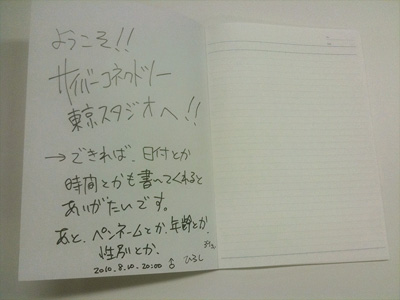 ようこそ!!
サイバーコネクトツー
東京スタジオへ!!
→できれば、日付とか
時間とかも書いてくれると
ありがたいです。
あと、ペンネームとか、年齢とか、
性別とか。
2010.8.10.20:00 ♂ ひろし